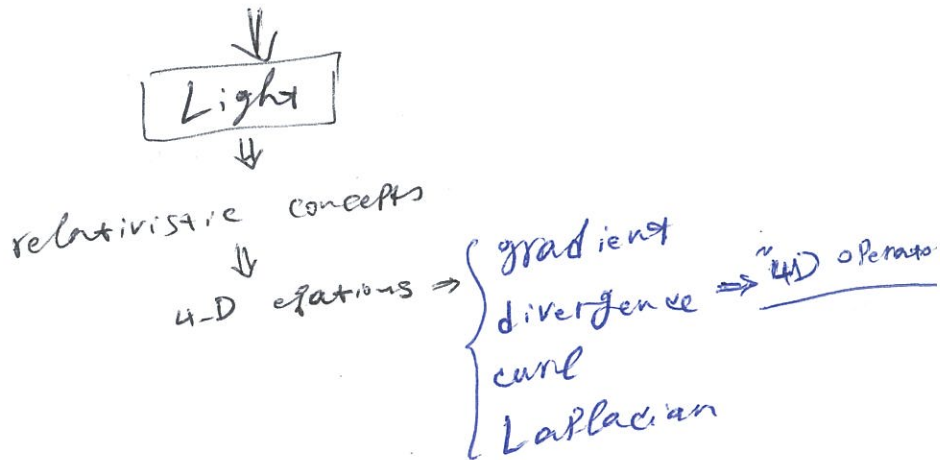 Light
relativistic concepts
4-D eqations ⇒
gradient
divergence ⇒ "4D operato
curl
Laplacian